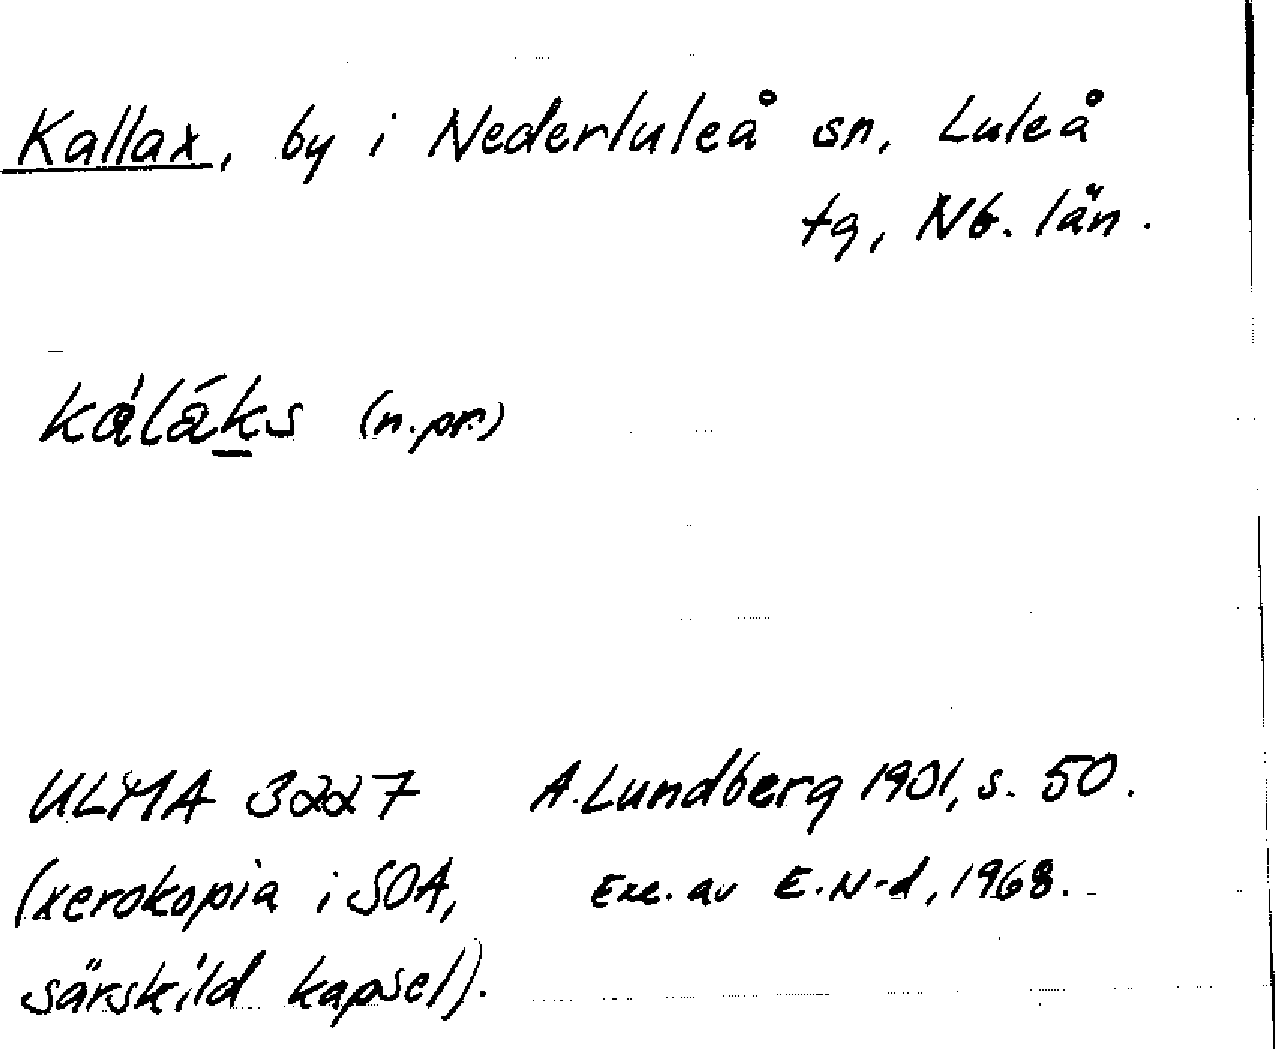 Kallax, by i Nederluleå sn, Luleå
tg, Nb. län.
káláks (n.pr.)
ULMA 3227 A. Lundberg 1901, s. 50.
(xerokopia i SOA, Exc. av E. N-d, 1968.
särskild kapsel).